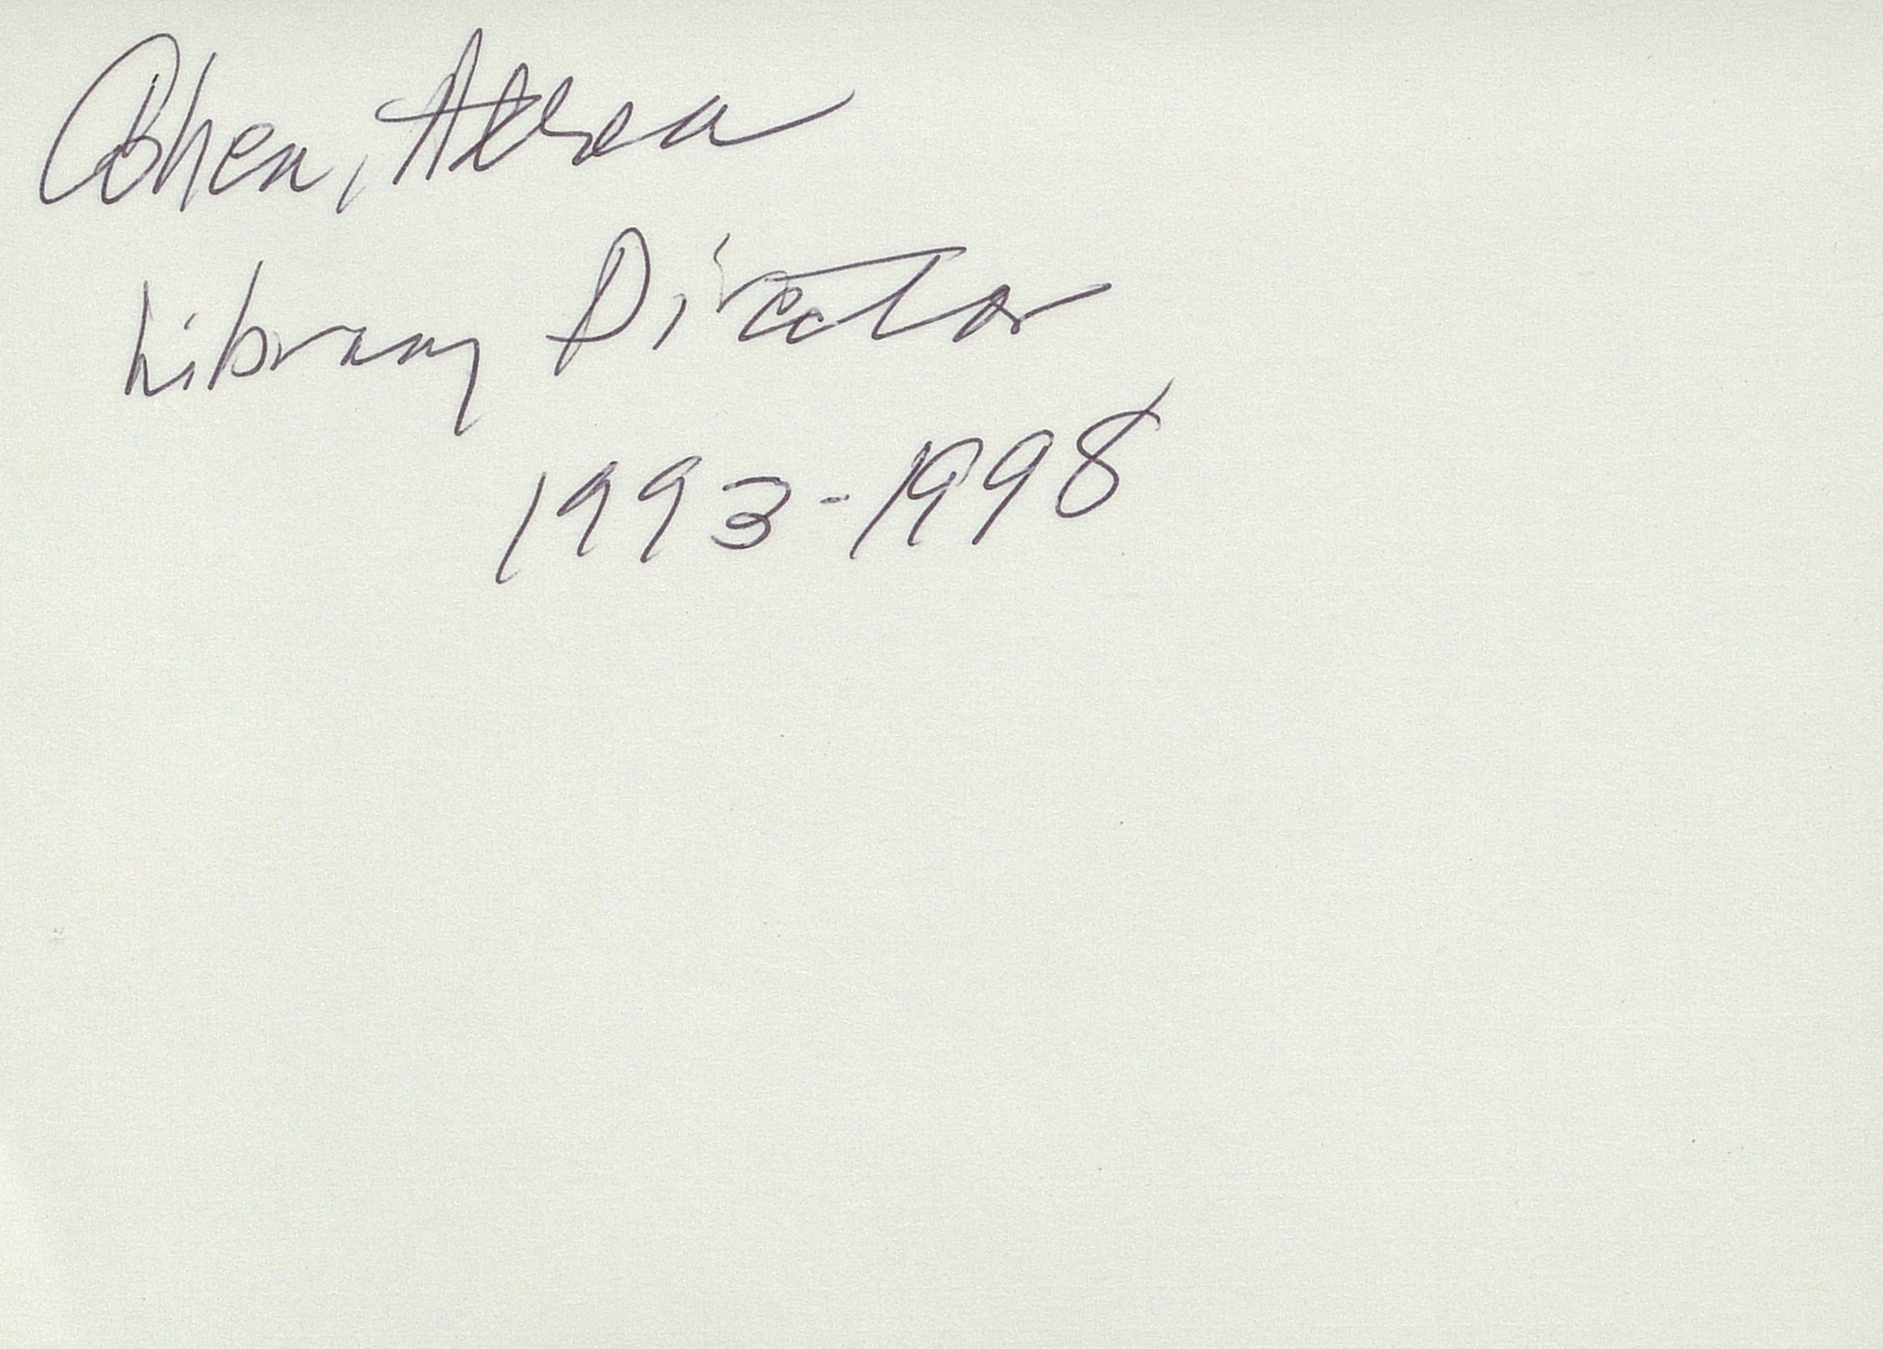 Cohen,
Library Director
1993-1998